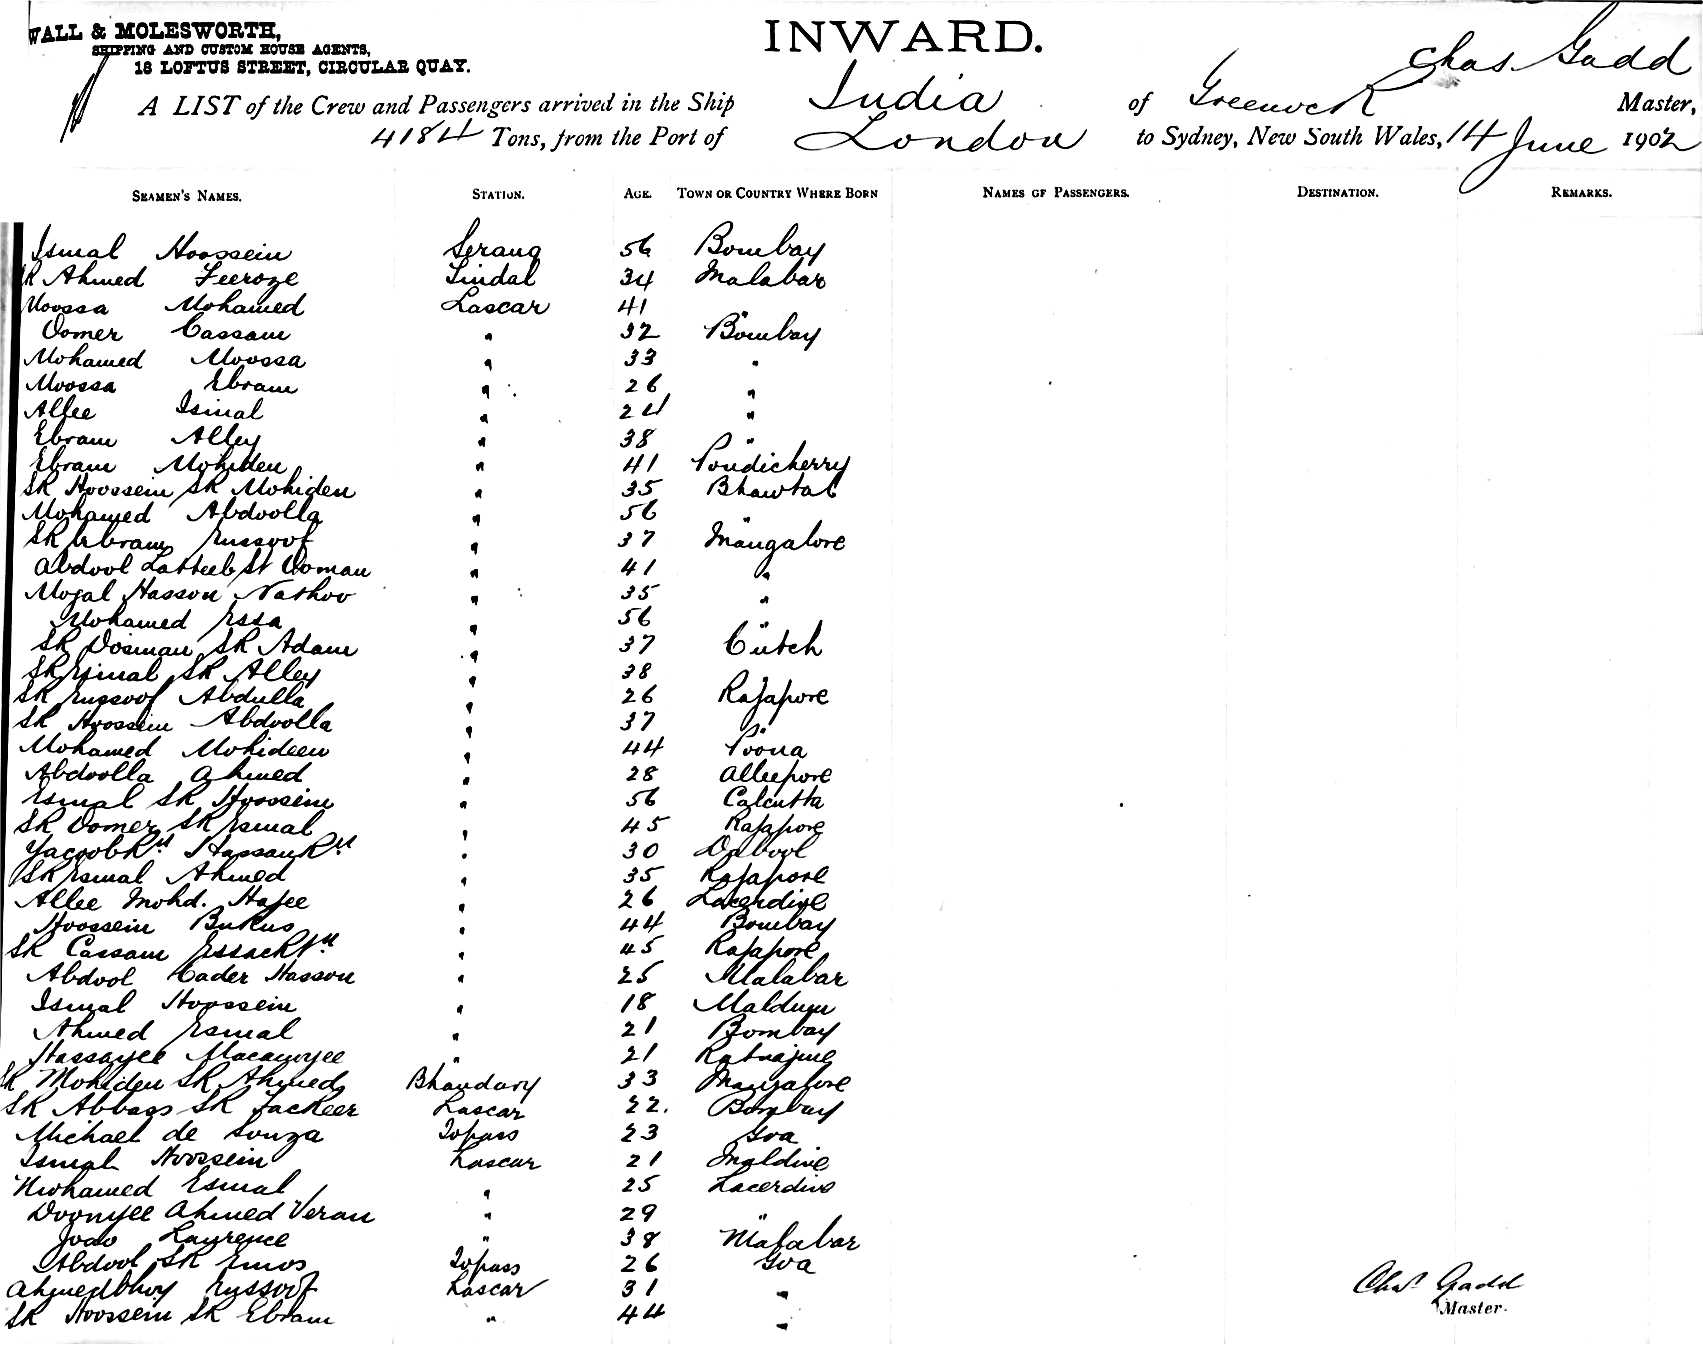 WALL & MOLESWORTH,
SHIPPING AND CUSTOM HOUSE AGENTS,
18 LOFTUS STREET, CIRCULAR QUAY.
INWARD.
Chas. Gadd
A LIST of the Crew and Passengers arrived in the Ship India of Greenock Master,
4184 Tons, from the Port of London to Sydney, New South Wales, 14 June 1902
SEAMEN'S NAMES. STATION. AGE. TOWN OR COUNTRY WHERE BORN NAMES OF PASSENGERS. DESTINATION. REMARKS.
Ismal Hoossein Serang 56 Bombay
SK Ahmed Feeroze Tindal 34 Malabar
Moossa Mohamed Lascar 41 "
Oomer Cassam " 32 Bombay
Mohamed Moossa " 33 "
Moossa Ebram " 26 "
Allee Ismal " 24 "
Ebram Alley " 38 "
Ebram Mohiden " 41 Pondicherry
SK Hoossein SK Mohiden " 35
Mohamed Abdoolla " 56 "
SK Ebram Eussoof " 37 Mangalore
Abdool Latteeb SK Ooman " 41 "
Mogal Hasson Nathoo " 35 "
Mohamed Essa " 56 "
SK Oosman SK Adam " 37 Cutch
SK Esmal SK Alley " 38
SK Eussoof Abdulla " 26 Rajapore
SK Hoossein Abdoolla " 37 "
Mohamed Mohideen " 44 Poona
Abdoolla Ahmed " 28 Alleepore
Esmal SK Hoossein " 56 Calcutta
SK Oomer SK Esmal " 45 Rajapore
Yacoob Hassan " 30 Dabool
SK Esmal Ahmed " 35 Rajapore
Allee Mohd. Hajee " 26 Lacerdive
Hoossein Bukus " 44 Bombay
SK Cassam " 45 Rajapore
Abdool Cader Hasson " 25 Malabar
Ismal Hoossein " 18
Ahmed Esmal " 21 Bombay
Hassayee " 21
SK Mohiden SK Ahmed Bhandary 33 Mangalore
SK Abbass SK Fackeer Lascar 22. Bombay
Michael de Souza Topass 23 Goa
Ismal Hoossein Lascar 21 Maldive
Mohamed Esmal " 25 Lacerdive
Doonyee Ahmed Veran " 29 "
Joao Laurence " 38 Malabar
Abdool SK Emos Topass 26 Goa
Ahmedbhoy Eussoof Lascar 31 "
SK Hoossein SK Ebram " 44 "
Chas. Gadd
Master.